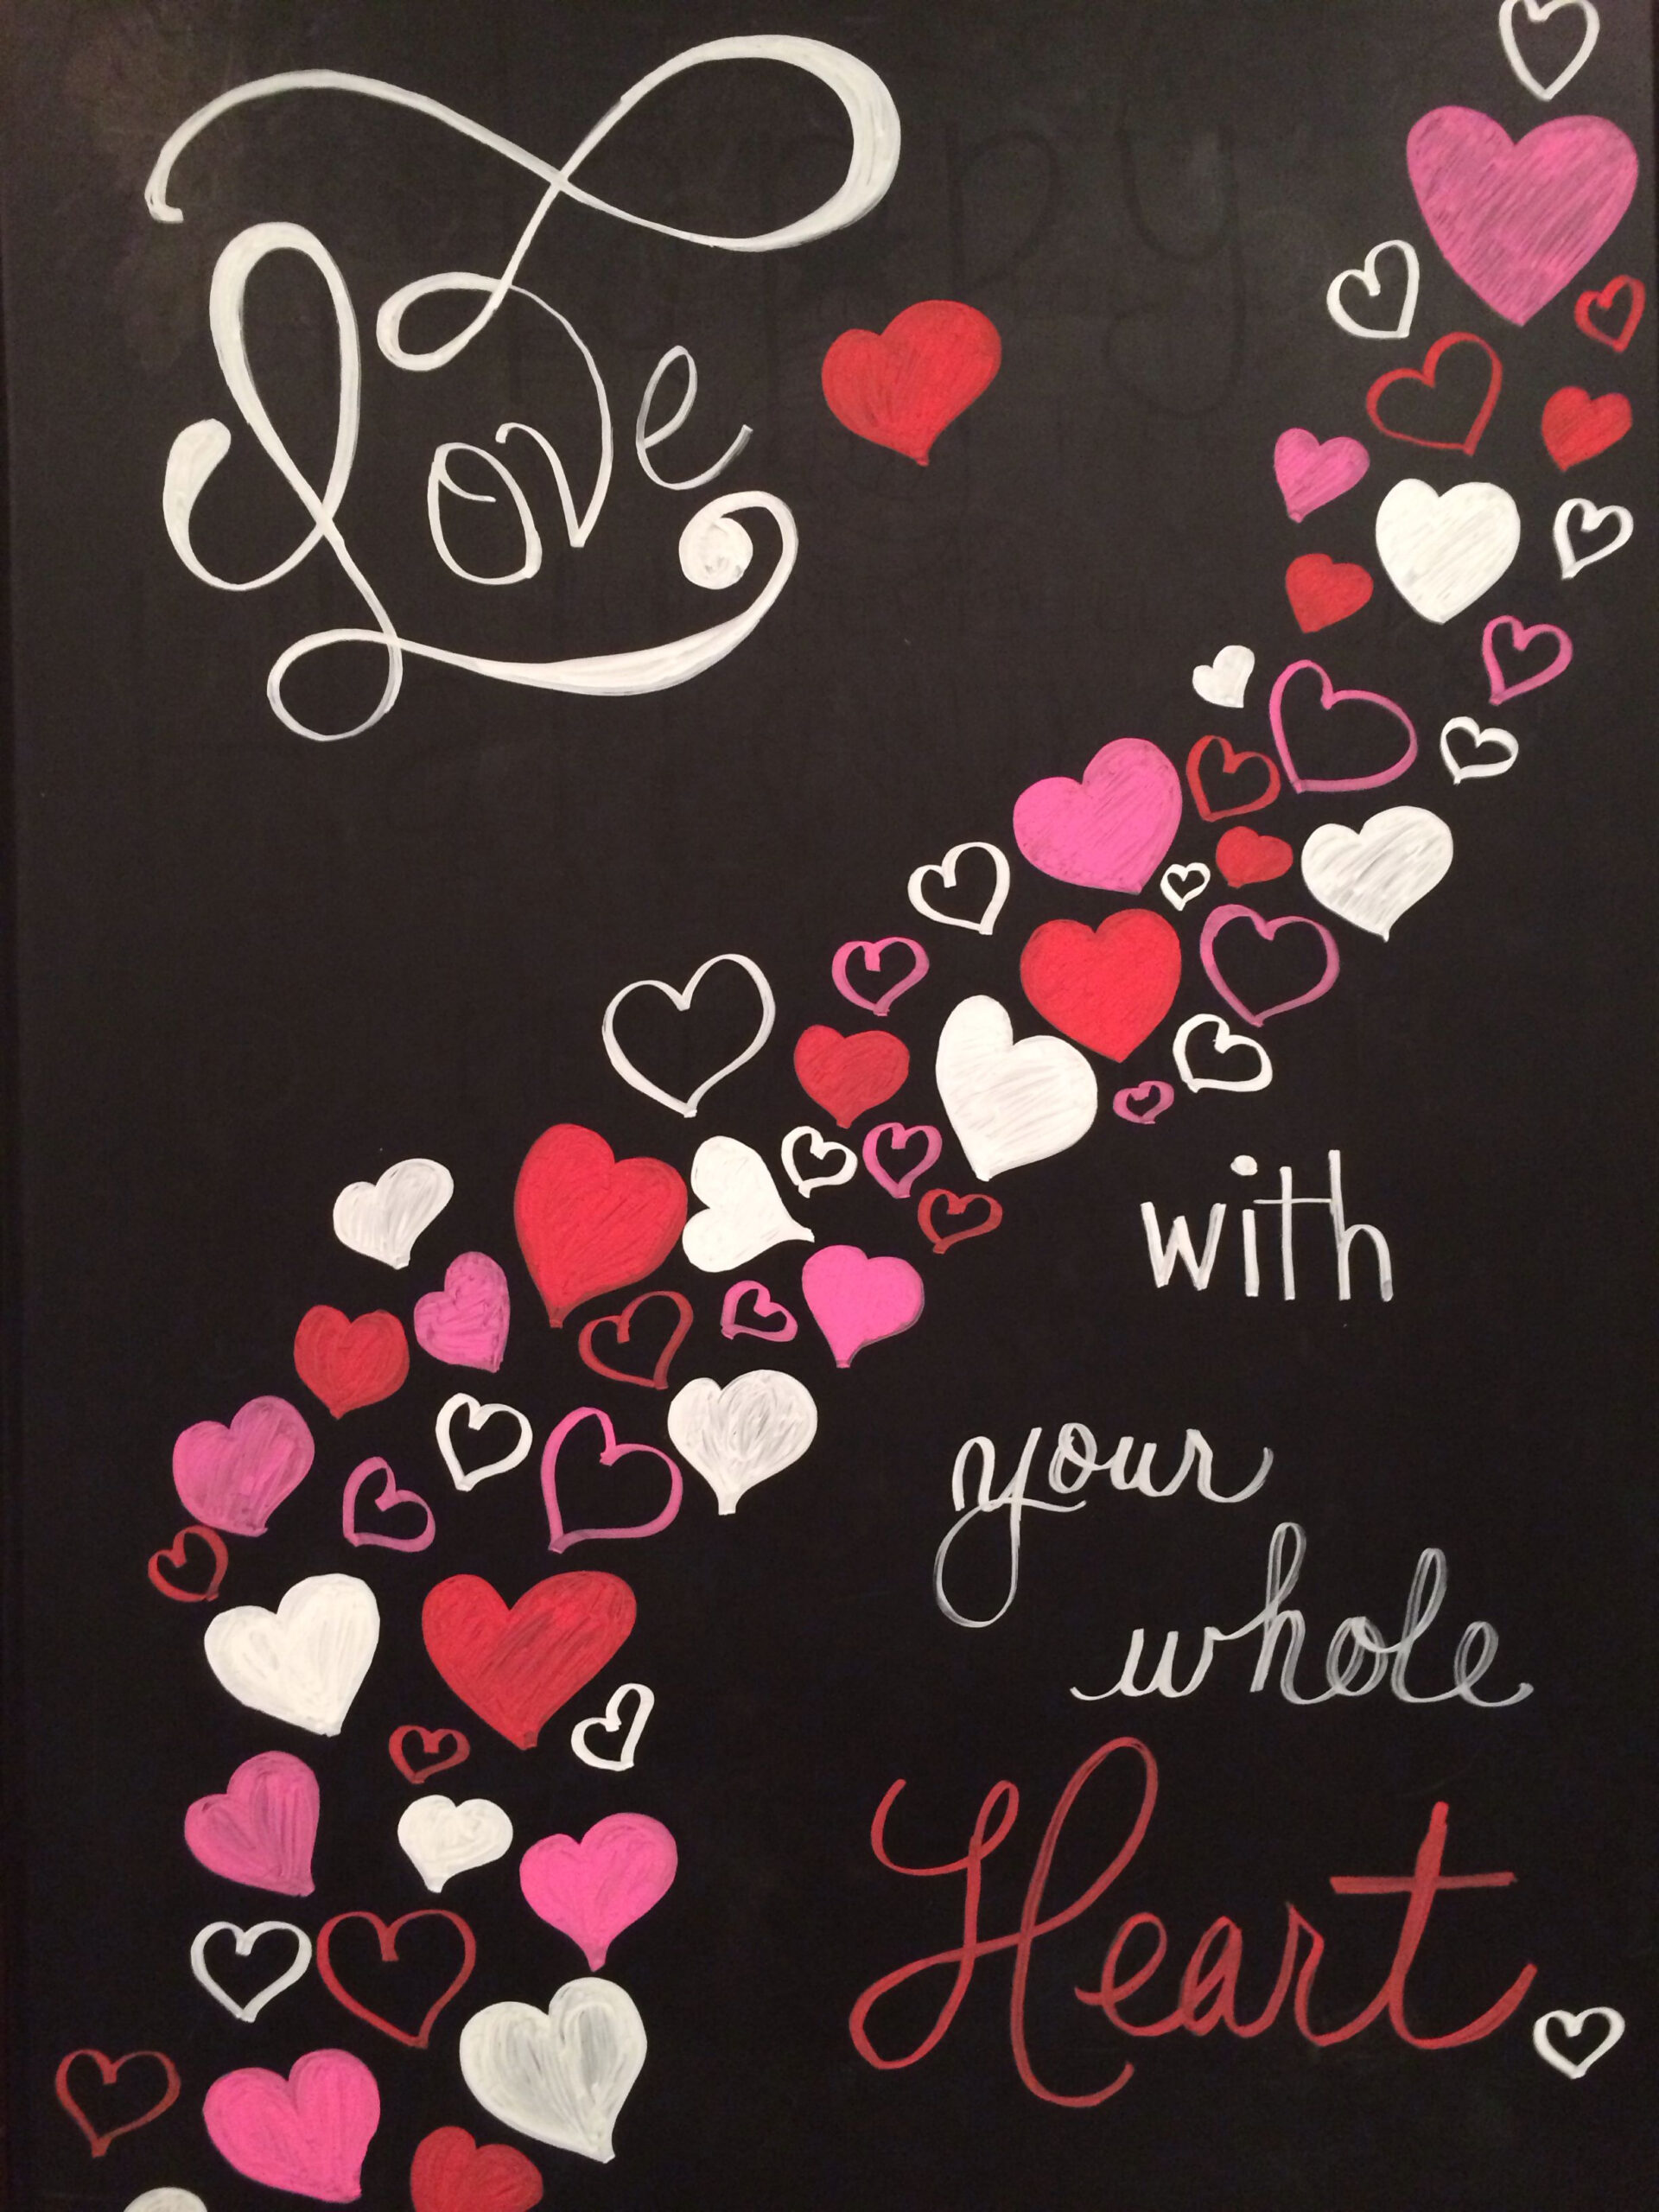 Love
with
your
whole
Heart